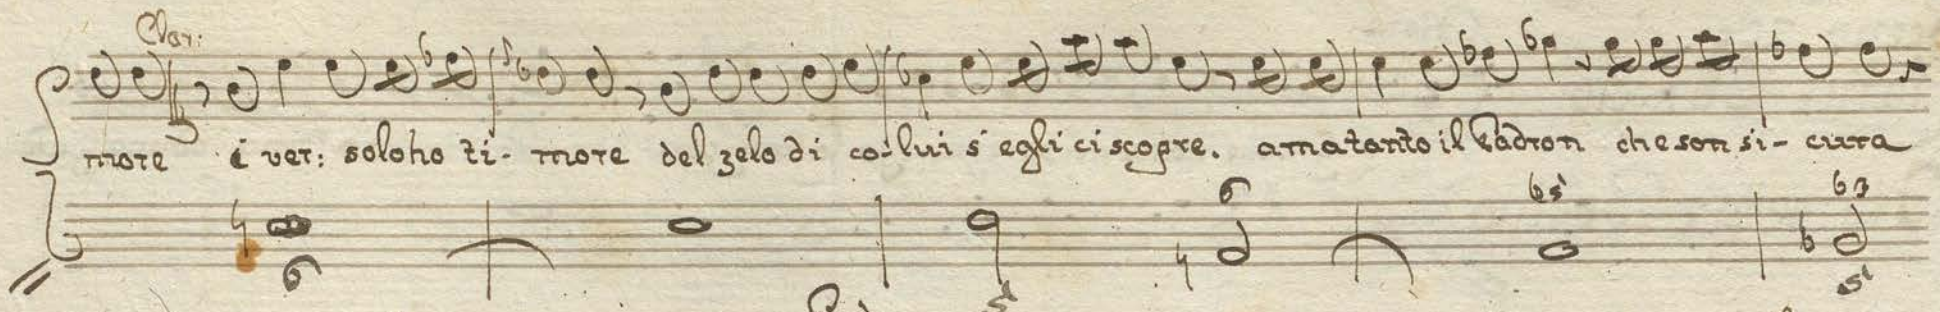 more è ver: solo ho ti- more del zelo di co- lui s'egli ci scopre. ama tanto il Padron che son si- cura
6 b5 b3
6 5 5